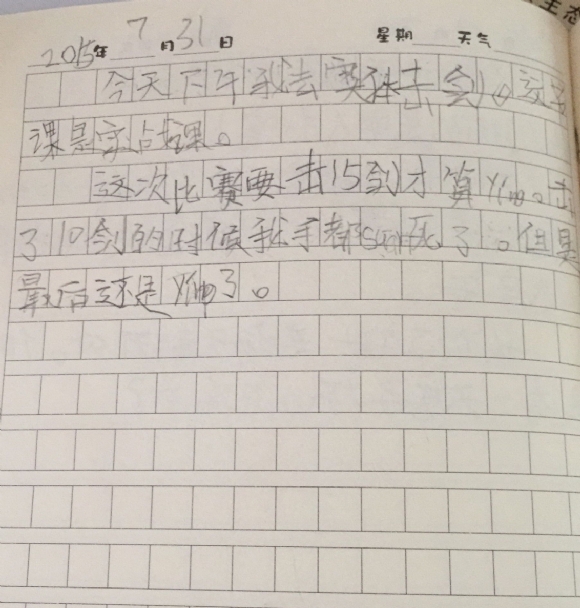 生态
2015年 7 月 31 日 星期 天气
今天下午我去 击剑。这
课是实占课。
这次比赛要击15剑才算yíng。击
了10剑的时候我手都suān死了。但是
最后还是yíng了。